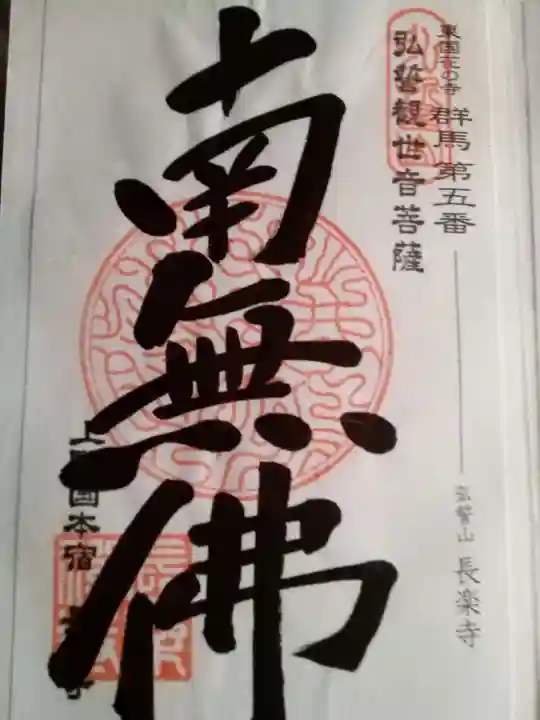 東国花の寺 群馬 第五番
弘誓山 長楽寺
弘誓観世音菩薩
南無佛
国本宿